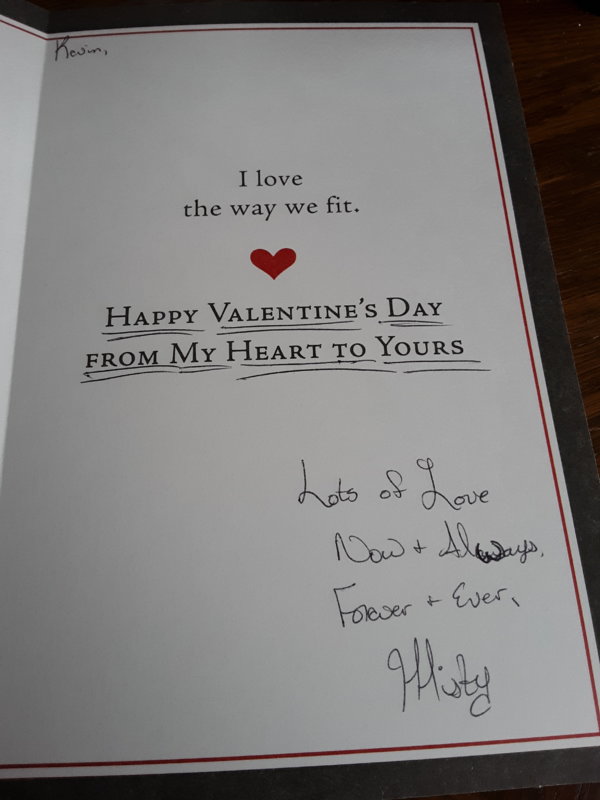 Kevin,
I love
the way we fit.
HAPPY VALENTINE'S DAY
FROM MY HEART TO YOURS
Lots of Love
Now + Always,
Forever + Ever,
Misty